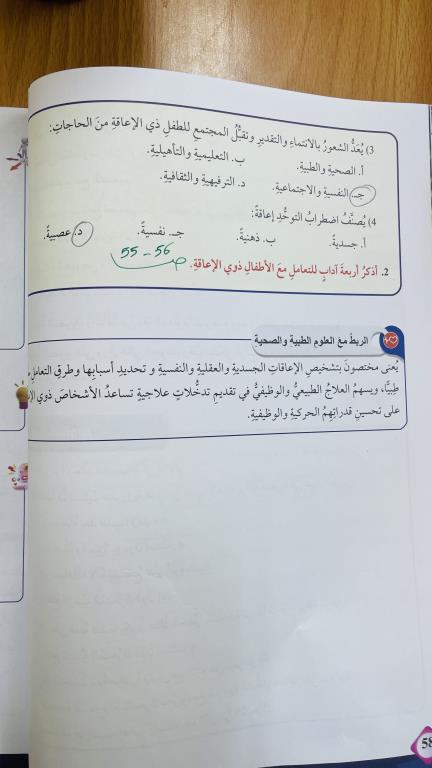 3) يُعَدُّ الشعورُ بالانتماءِ والتقديرِ وتقبُّلُ المجتمعِ للطفلِ ذي الإعاقةِ منَ الحاجاتِ:
أ. الصحيةِ والطبيةِ. ب. التعليميةِ والتأهيليةِ.
جـ. النفسيةِ والاجتماعيةِ. د. الترفيهيةِ والثقافيةِ.
4) يُصنَّفُ اضطرابُ التوحُّدِ إعاقةً:
أ. جسديةً. ب. ذهنيةً. جـ. نفسيةً. د. عصبيةً.
2. أذكرُ أربعةَ آدابٍ للتعاملِ معَ الأطفالِ ذوي الإعاقةِ. ص 55 - 56
الربطُ معَ العلومِ الطبيةِ والصحيةِ
يُعنى مختصونَ بتشخيصِ الإعاقاتِ الجسديةِ والعقليةِ والنفسيةِ و تحديدِ أسبابِها وطرقِ التعاملِ
طبيًّا، ويسهمُ العلاجُ الطبيعيُّ والوظيفيُّ في تقديمِ تدخُّلاتٍ علاجيةٍ تساعدُ الأشخاصَ ذوي
على تحسينِ قدراتِهِمُ الحركيةِ والوظيفيةِ.
58